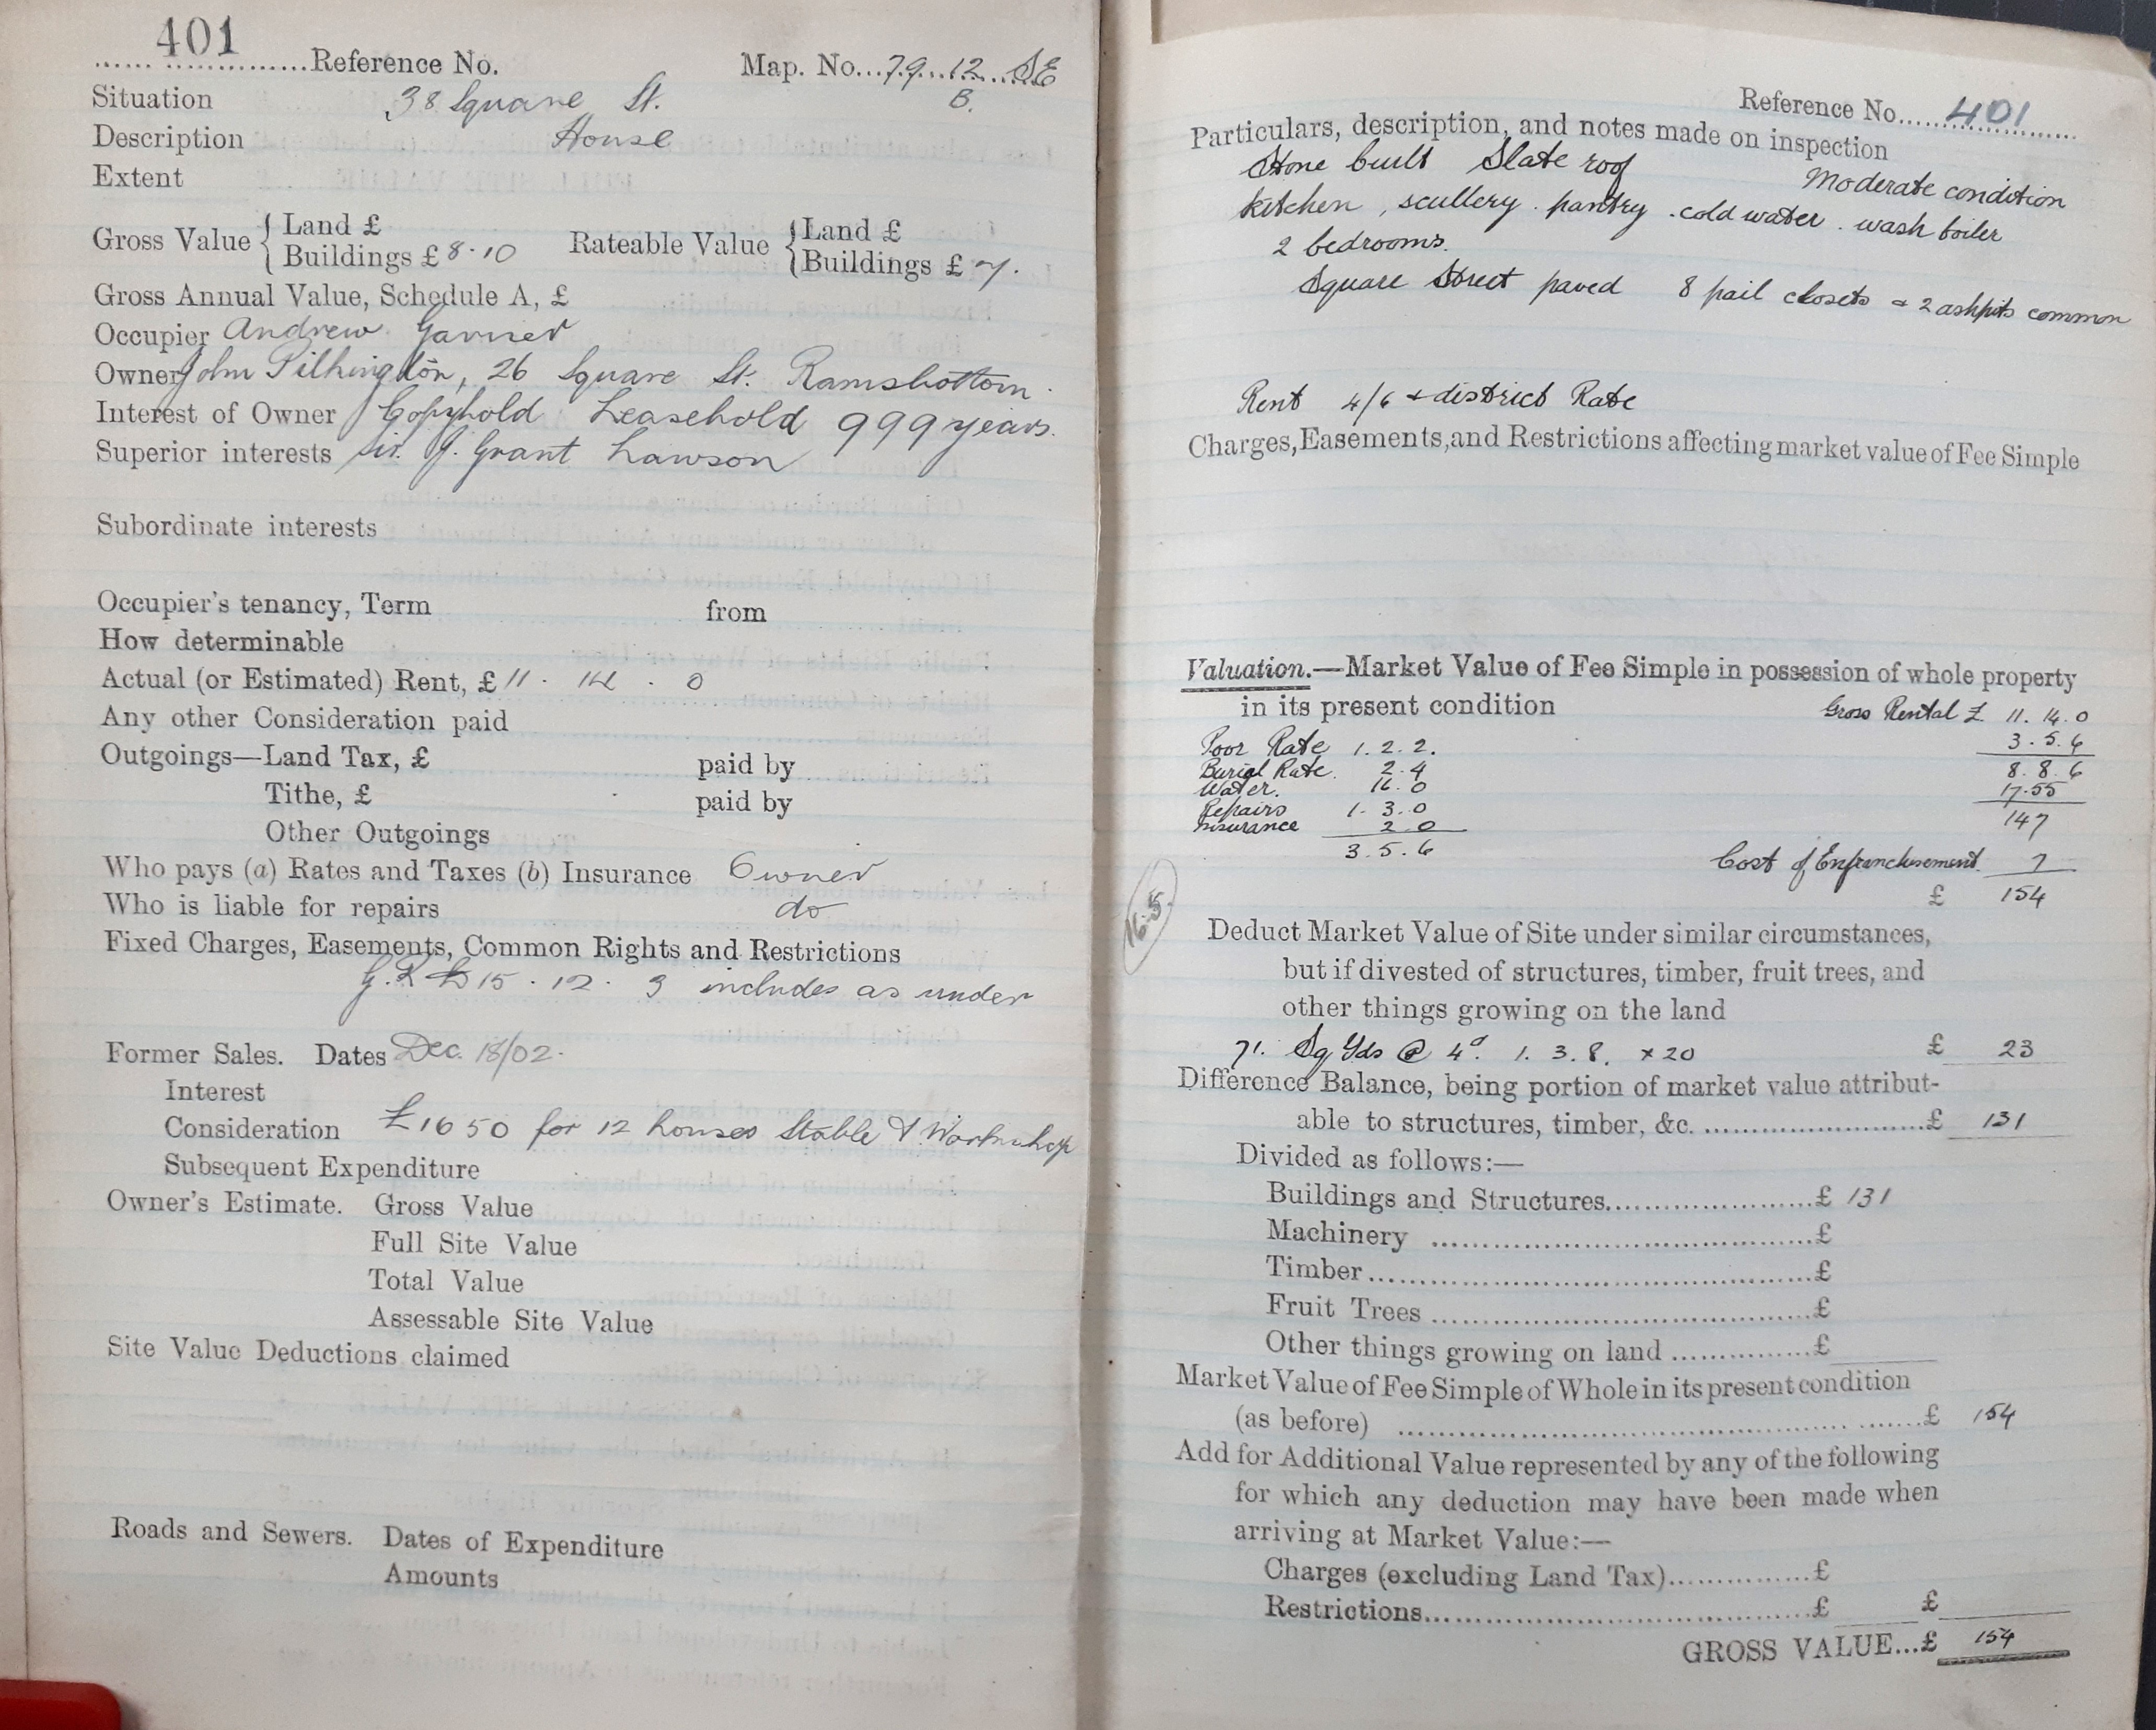 401
Reference No.
Map. No... 79. 12 SE
B.
Situation 38 Square St.
Description House
Extent
Gross Value { Land £
Buildings £ 8.10
Rateable Value { Land £
Buildings £ 7.
Gross Annual Value, Schedule A, £
Occupier Andrew Garner
Owner John Pilkington, 26 Square St. Ramsbottom.
Interest of Owner Copyhold Leasehold 999 years.
Superior interests Sir. J. Grant Lawson
Subordinate interests
Occupier's tenancy, Term from
How determinable
Actual (or Estimated) Rent, £ 11. 14. 0
Any other Consideration paid
Outgoings—Land Tax, £ paid by
Tithe, £ paid by
Other Outgoings
Who pays (a) Rates and Taxes (b) Insurance Owner
Who is liable for repairs do
Fixed Charges, Easements, Common Rights and Restrictions
G.R £15. 12. 3 includes as under
Former Sales. Dates Dec. 18/02.
Interest
Consideration £1650 for 12 houses Stable & Workshop
Subsequent Expenditure
Owner's Estimate. Gross Value
Full Site Value
Total Value
Assessable Site Value
Site Value Deductions claimed
Roads and Sewers. Dates of Expenditure
Amounts
Reference No. 401
Particulars, description, and notes made on inspection
Stone built Slate roof Moderate condition
kitchen, scullery. pantry. cold water. wash boiler
2 bedrooms.
Square Street paved 8 pail closets & 2 ashpits common
Rent 4/6 + district Rate
Charges, Easements, and Restrictions affecting market value of Fee Simple
Valuation.—Market Value of Fee Simple in possession of whole property
in its present condition Gross Rental £ 11. 14. 0
Poor Rate 1. 2. 2. 3. 5. 6
Burial Rate. 2. 4 8. 8. 6
Water. 16. 0 17.55
Repairs 1. 3. 0
Insurance 2. 0 147
3. 5. 6
Cost of Enfranchisement. 7
£ 154
16.5.
Deduct Market Value of Site under similar circumstances,
but if divested of structures, timber, fruit trees, and
other things growing on the land
71. Sq Yds @ 4d. 1. 3. 8. x 20 £ 23
Difference Balance, being portion of market value attribut-
able to structures, timber, &c. £ 131
Divided as follows:—
Buildings and Structures £ 131
Machinery £
Timber £
Fruit Trees £
Other things growing on land £
Market Value of Fee Simple of Whole in its present condition
(as before) £ 154
Add for Additional Value represented by any of the following
for which any deduction may have been made when
arriving at Market Value:—
Charges (excluding Land Tax) £
Restrictions £ £
GROSS VALUE...£ 154